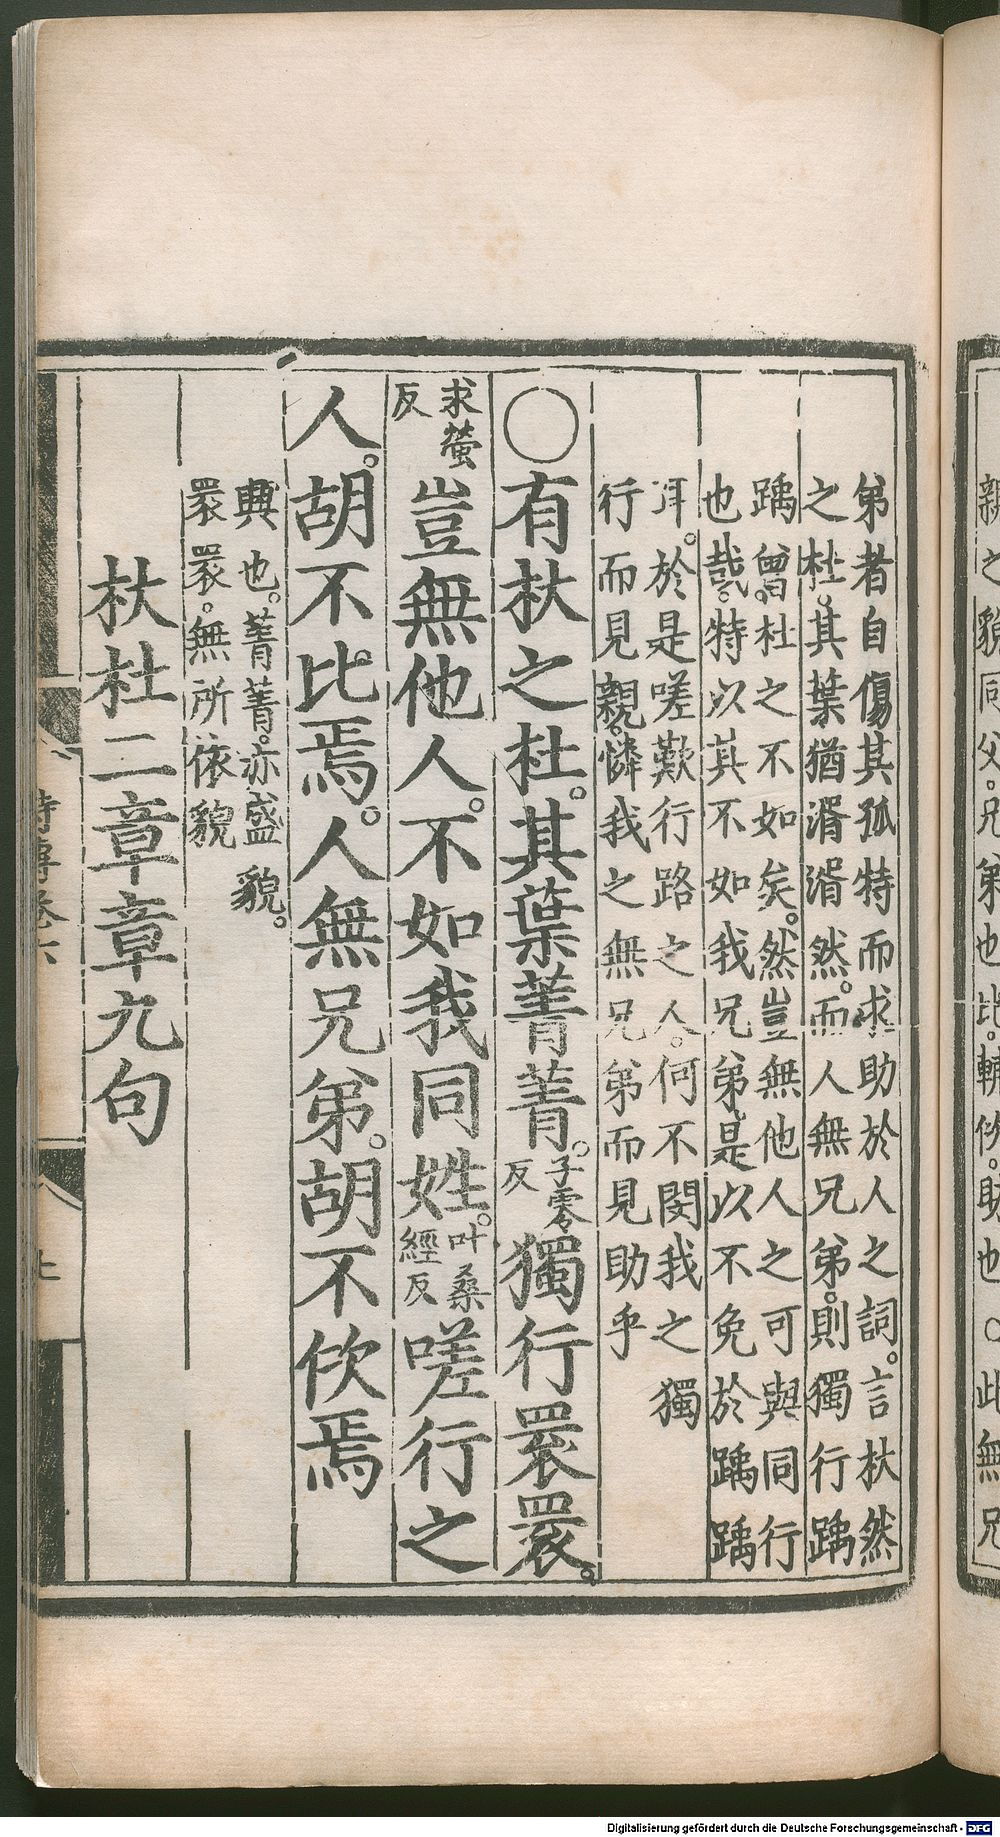 親之貌同父。兄弟也比。輔佽。助也○此無兄
弟者自傷其孤特而求助於人之詞。言杕然
之杜。其葉猶湑湑然。而人無兄弟。則獨行踽
踽。曾杜之不如矣。然豈無他人之可與同行
也哉。特以其不如我兄弟。是以不免於踽踽
耳。於是嗟歎行路之人。何不閔我之獨
行而見親。憐我之無兄弟而見助乎
○有杕之杜。其葉菁菁。子零反獨行睘睘。
求螢反豈無他人。不如我同姓。叶桑經反嗟行之
人。胡不比焉。人無兄弟。胡不佽焉
興也。菁菁。亦盛貌。
睘睘。無所依貌
杕杜二章章九句
詩傳卷六
Digitalisierung gefördert durch die Deutsche Forschungsgemeinschaft - DFG